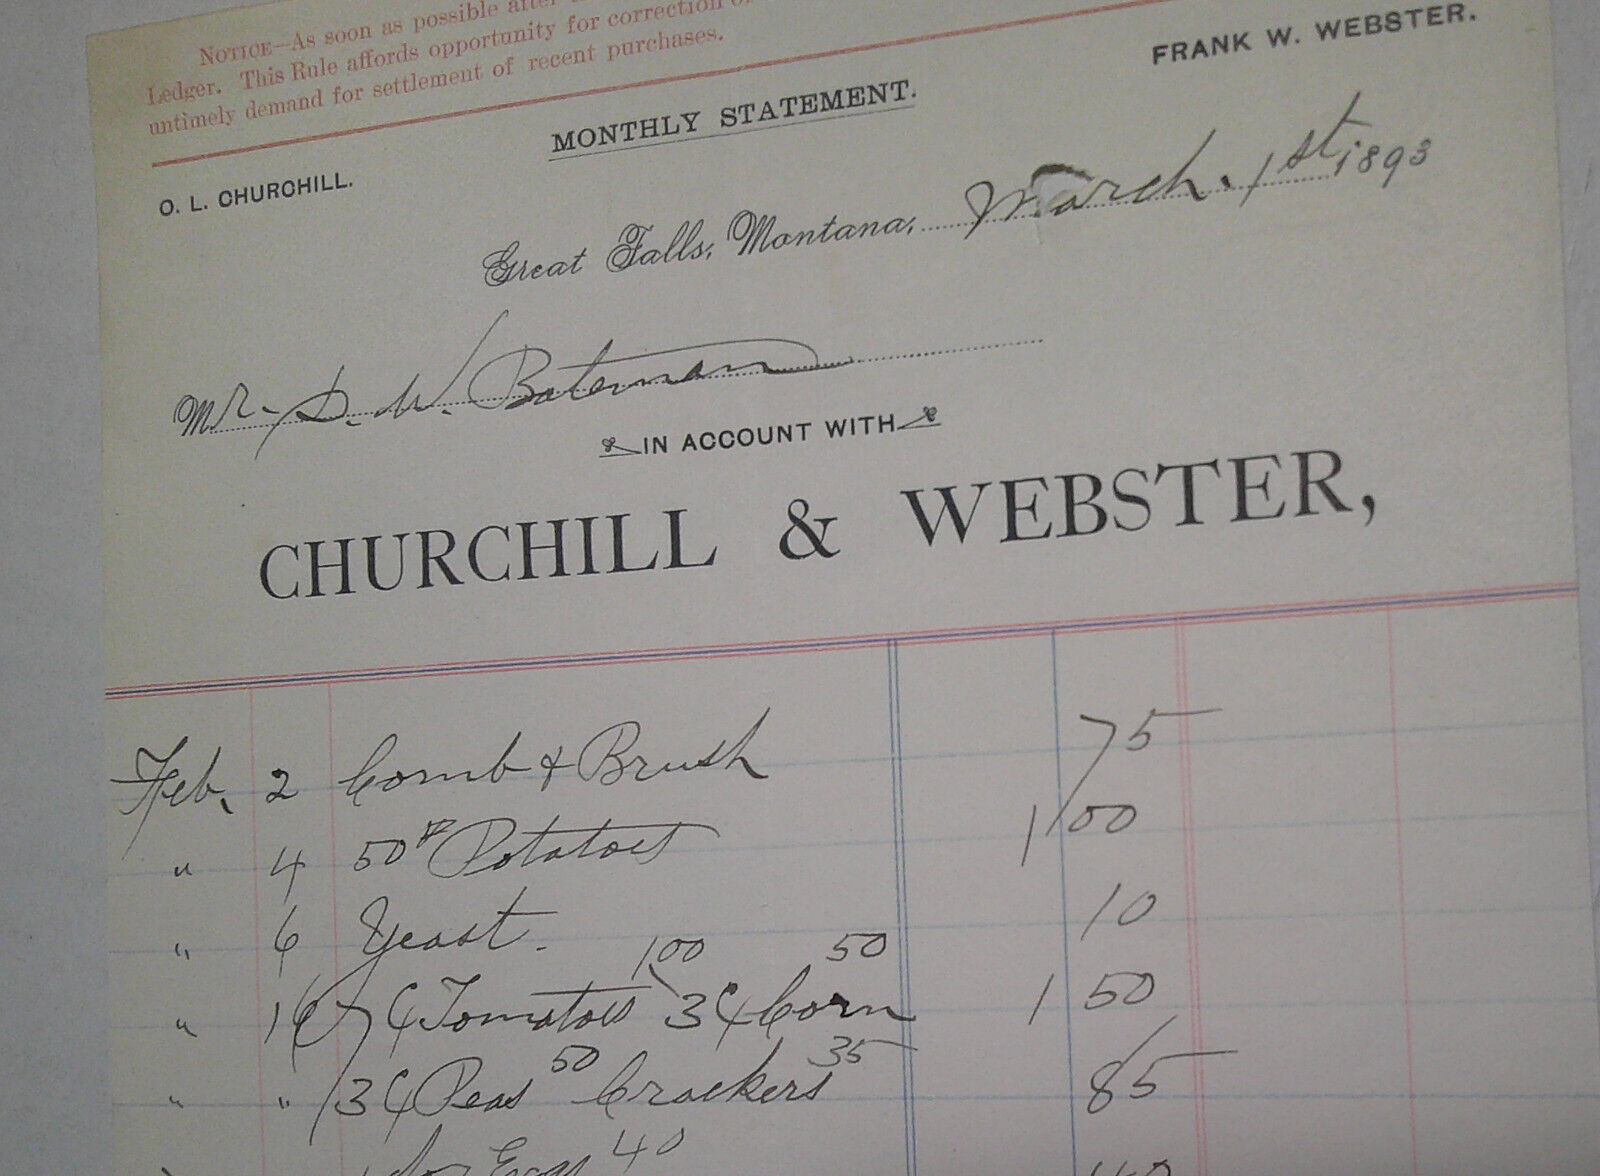 NOTICE—As soon as possible after
Ledger. This Rule affords opportunity for correction o
untimely demand for settlement of recent purchases.
FRANK W. WEBSTER.
MONTHLY STATEMENT.
O. L. CHURCHILL.
Great Falls, Montana, March. 1st 1893
Mr. D. W. Bateman
IN ACCOUNT WITH
CHURCHILL & WEBSTER,
Feb. 2 Comb & Brush 75
" 4 50# Potatoes 1 00
" 6 Yeast. 10
" 16 Tomatoes 1 00 3 C Corn 50 1 50
" " 3 C Peas 50 Crackers 35 85
Eggs 40 40